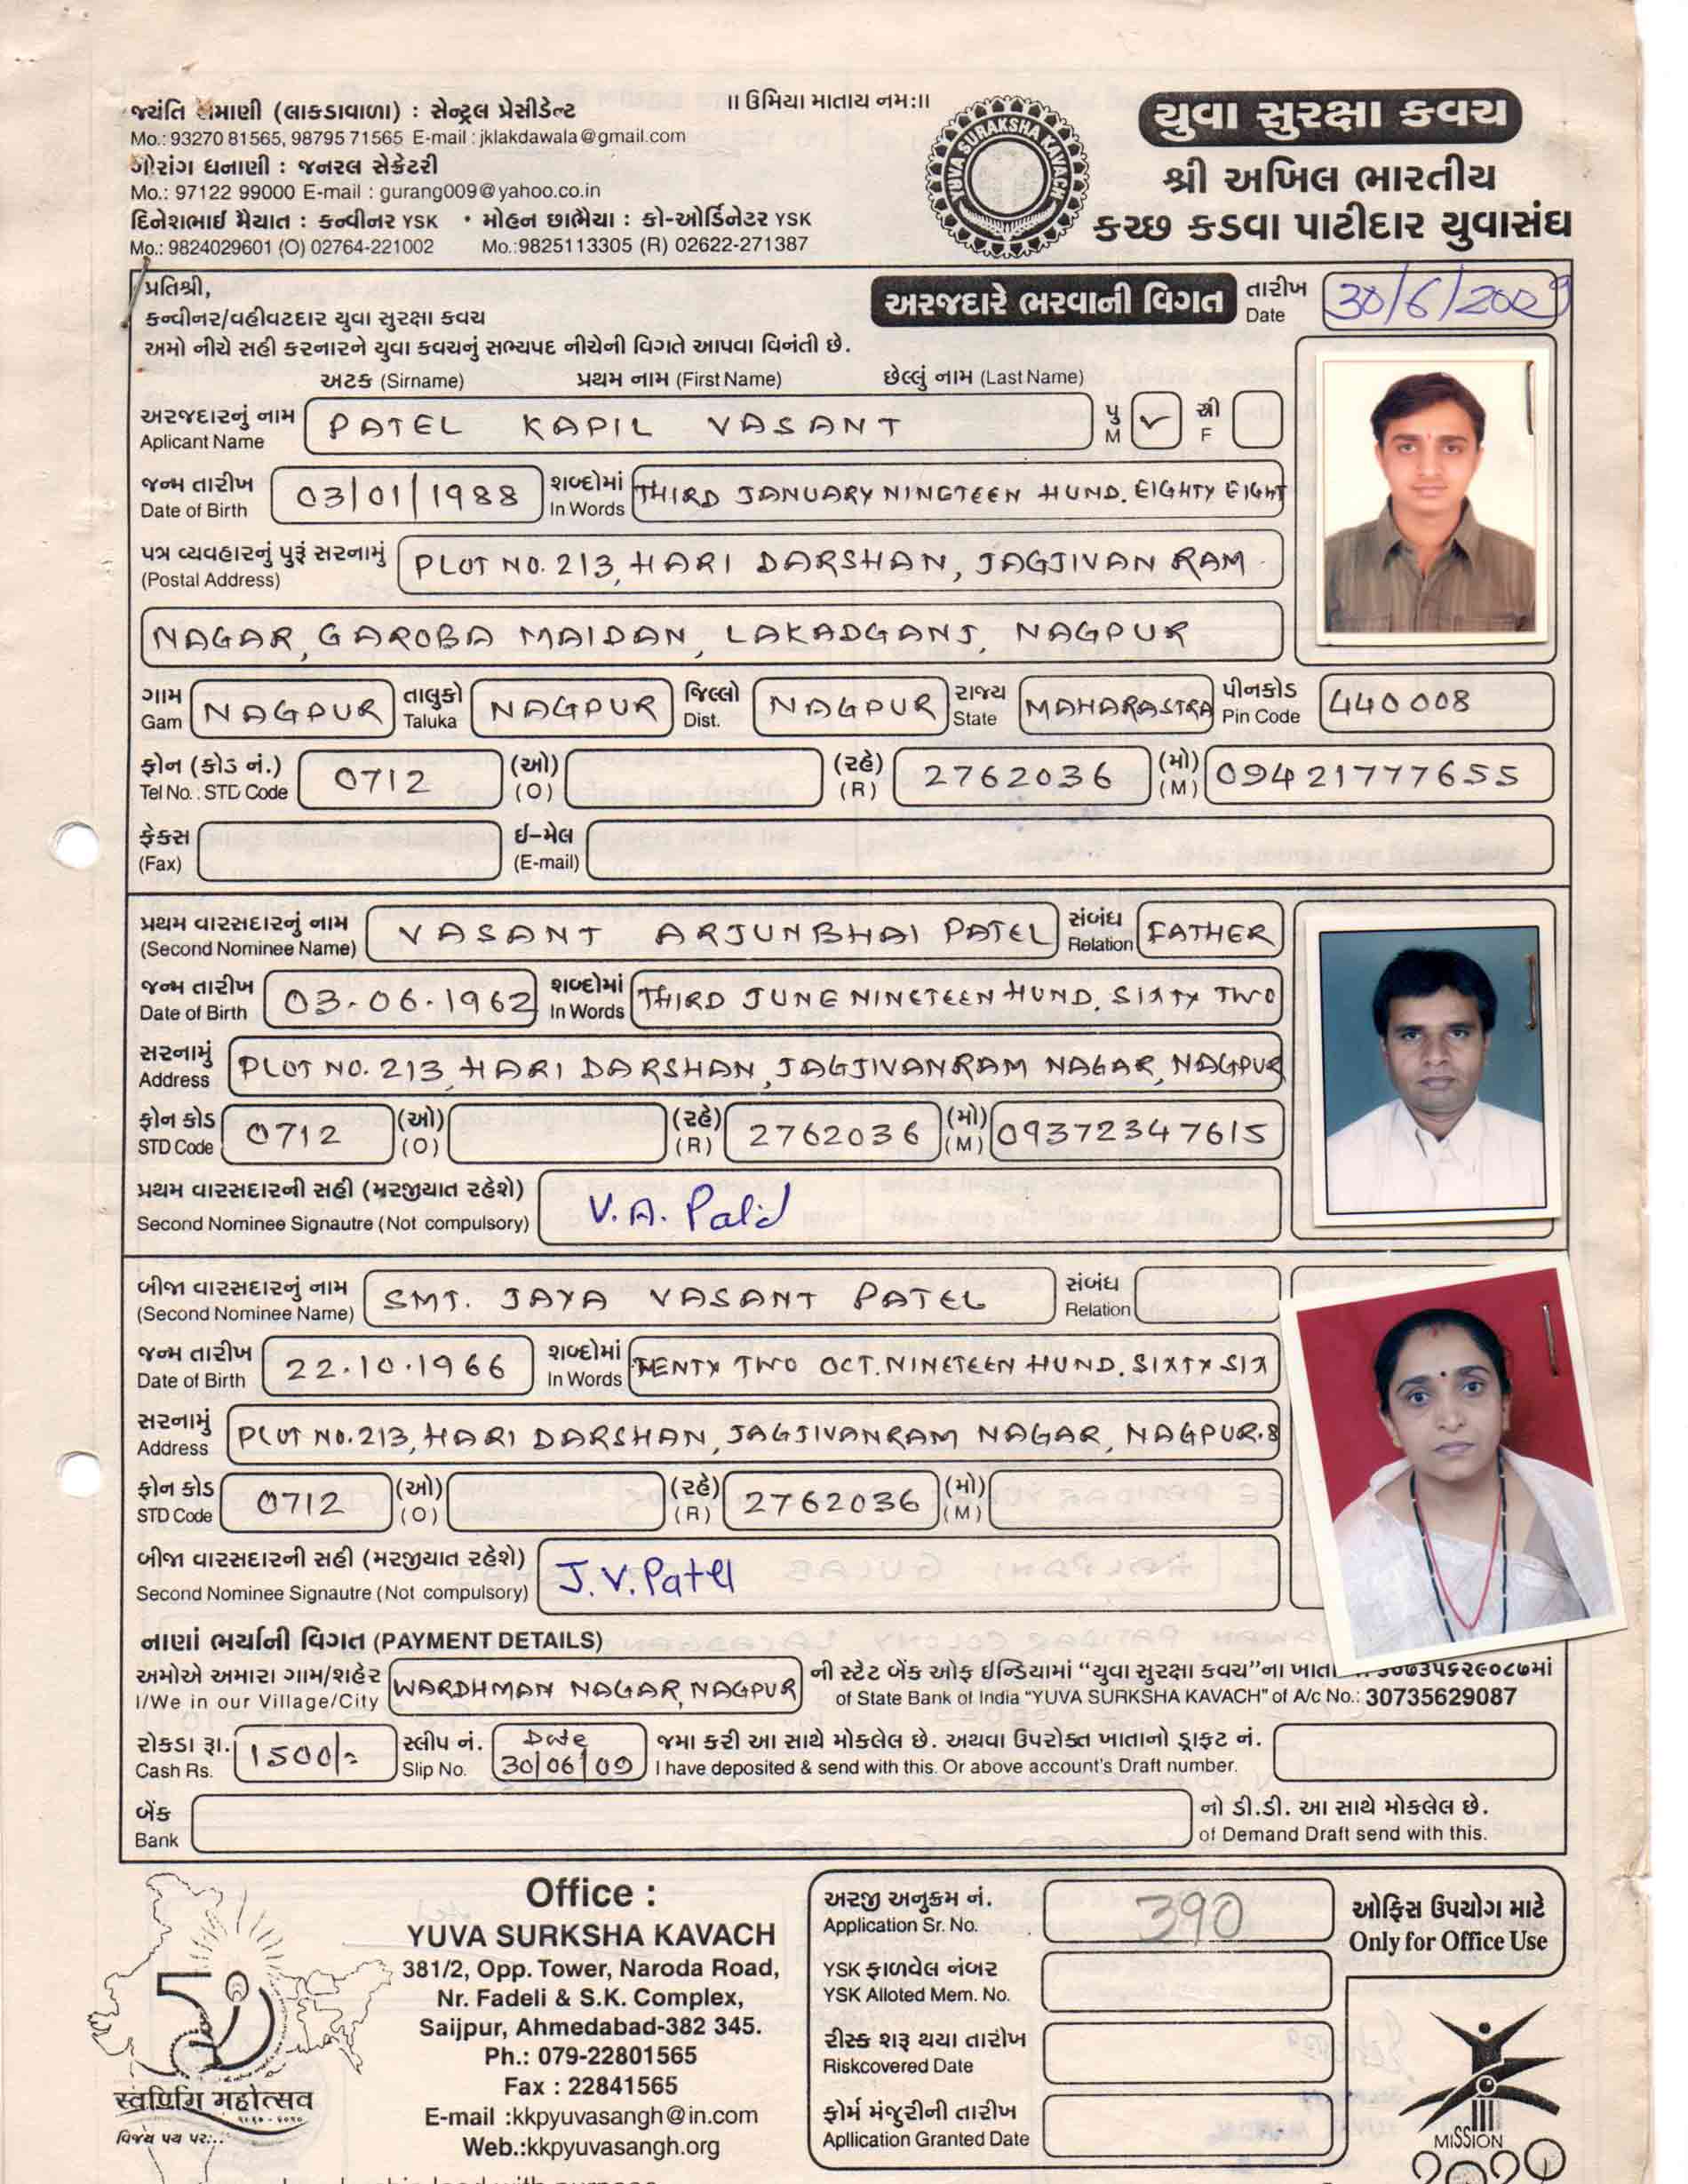 જયંતિ રામાણી (લાકડાવાળા) : સેન્ટ્રલ પ્રેસીડેન્ટ
Mo.: 93270 81565, 98795 71565 E-mail : jklakdawala@gmail.com
ગોરાંગ ધનાણી : જનરલ સેક્રેટરી
Mo.: 97122 99000 E-mail : gurang009@yahoo.co.in
દિનેશભાઈ મૈયાત : કન્વીનર YSK • મોહન છાભૈયા : કો-ઓર્ડિનેટર YSK
Mo.: 9824029601 (O) 02764-221002 Mo.:9825113305 (R) 02622-271387
॥ ઉમિયા માતાય નમઃ॥
YUVA SURAKSHA KAVACH
યુવા સુરક્ષા કવચ
શ્રી અખિલ ભારતીય
કચ્છ કડવા પાટીદાર યુવાસંઘ
પ્રતિશ્રી,
કન્વીનર/વહીવટદાર યુવા સુરક્ષા કવચ
અરજદારે ભરવાની વિગત તારીખ Date 30/6/2009
અમો નીચે સહી કરનારને યુવા કવચનું સભ્યપદ નીચેની વિગતે આપવા વિનંતી છે.
અટક (Sirname) પ્રથમ નામ (First Name) છેલ્લું નામ (Last Name)
અરજદારનું નામ Aplicant Name PATEL KAPIL VASANT પુ M ✓ સ્ત્રી F
જન્મ તારીખ Date of Birth 03/01/1988 શબ્દોમાં In Words THIRD JANUARY NINGTEEN HUND. EIGHTY EIGHT
પત્ર વ્યવહારનું પુરૂં સરનામું (Postal Address) PLOT NO. 213, HARI DARSHAN, JAGJIVAN RAM
NAGAR, GAROBA MAIDAN, LAKADGANJ, NAGPUR
ગામ Gam NAGPUR તાલુકો Taluka NAGPUR જિલ્લો Dist. NAGPUR રાજ્ય State MAHARASTRA પીનકોડ Pin Code 440008
ફોન (કોડ નં.) Tel No.: STD Code 0712 (ઓ) (O) (રહે) (R) 2762036 (મો) (M) 09421777655
ફેકસ (Fax) ઈ-મેલ (E-mail)
પ્રથમ વારસદારનું નામ (Second Nominee Name) VASANT ARJUNBHAI PATEL સંબંધ Relation FATHER
જન્મ તારીખ Date of Birth 03-06-1962 શબ્દોમાં In Words THIRD JUNE NINETEEN HUND. SIXTY TWO
સરનામું Address PLOT NO. 213, HARI DARSHAN, JAGJIVANRAM NAGAR, NAGPUR
ફોન કોડ STD Code 0712 (ઓ) (O) (રહે) (R) 2762036 (મો) (M) 09372347615
પ્રથમ વારસદારની સહી (મરજીયાત રહેશે) Second Nominee Signautre (Not compulsory) V.A. Patel
બીજા વારસદારનું નામ (Second Nominee Name) SMT. JAYA VASANT PATEL સંબંધ Relation
જન્મ તારીખ Date of Birth 22.10.1966 શબ્દોમાં In Words TWENTY TWO OCT. NINETEEN HUND. SIXTY SIX
સરનામું Address PLOT NO. 213, HARI DARSHAN, JAGJIVANRAM NAGAR, NAGPUR.8
ફોન કોડ STD Code 0712 (ઓ) (O) (રહે) (R) 2762036 (મો) (M)
બીજા વારસદારની સહી (મરજીયાત રહેશે) Second Nominee Signautre (Not compulsory) J.V. Patel
નાણાં ભર્યાની વિગત (PAYMENT DETAILS)
અમોએ અમારા ગામ/શહેર WARDHMAN NAGAR, NAGPUR ની સ્ટેટ બેંક ઓફ ઈન્ડિયામાં “યુવા સુરક્ષા કવચ”ના ખાતા ૩૦૭૩૫૬૨૯૦૮૭માં
I/We in our Village/City of State Bank of India "YUVA SURKSHA KAVACH" of A/c No.: 30735629087
રોકડા રૂા. Cash Rs. 1500/- સ્લીપ નં. Slip No. Date 30/06/09 જમા કરી આ સાથે મોકલેલ છે. અથવા ઉપરોક્ત ખાતાનો ડ્રાફ્ટ નં.
I have deposited & send with this. Or above account's Draft number.
બેંક Bank નો ડી.ડી. આ સાથે મોકલેલ છે.
of Demand Draft send with this.
स्वर्णिम महोत्सव
વિજય પથ પર...
Office :
YUVA SURKSHA KAVACH
381/2, Opp. Tower, Naroda Road,
Nr. Fadeli & S.K. Complex,
Saijpur, Ahmedabad-382 345.
Ph.: 079-22801565
Fax : 22841565
E-mail :kkpyuvasangh@in.com
Web.:kkpyuvasangh.org
અરજી અનુક્રમ નં. Application Sr. No. 390
ઓફિસ ઉપયોગ માટે
Only for Office Use
YSK ફાળવેલ નંબર
YSK Alloted Mem. No.
રીસ્ક શરૂ થયા તારીખ
Riskcovered Date
ફોર્મ મંજુરીની તારીખ
Apllication Granted Date
MISSION
2020